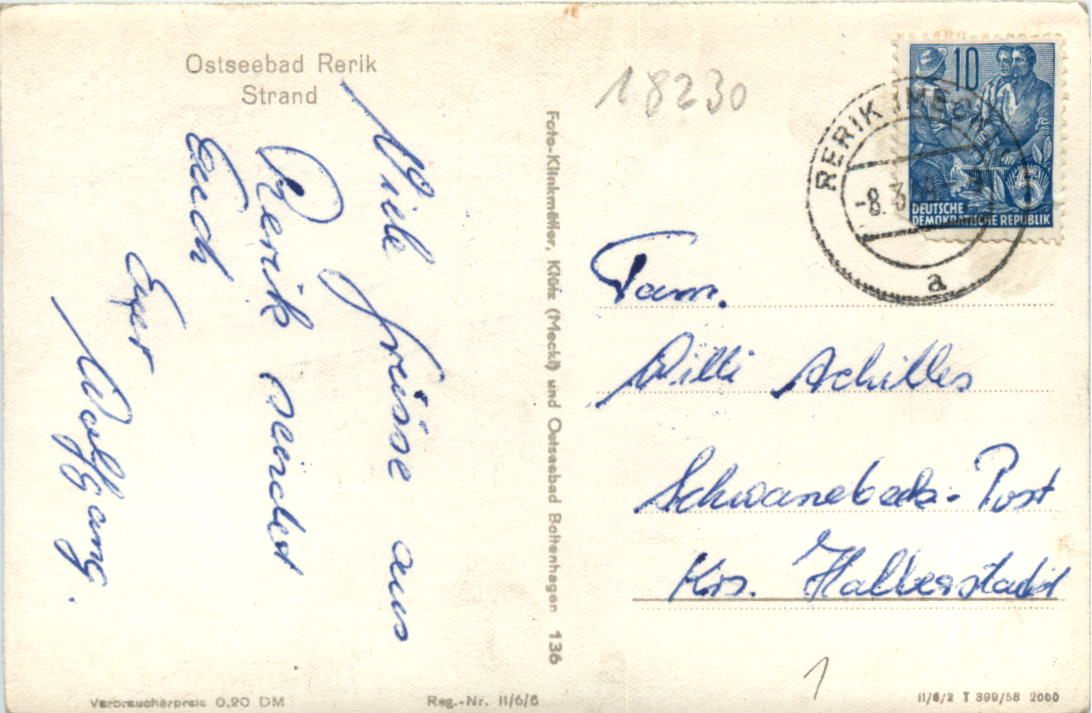 Ostseebad Rerik
Strand
Viele Grüsse aus
Rerik sendet
Euch
Euer
Wolfgang.
Foto-Klinkmüller, Klütz (Meckl) und Ostseebad Boltenhagen 136
18230
10
5
DEUTSCHE
DEMOKRATISCHE REPUBLIK
RERIK (MECKL)
-8. 3
a
Fam.
Willi Achilles
Schwanebeck-Post
Krs. Halberstadt
1
Verbraucherpreis 0,20 DM
Reg.-Nr. II/6/6
II/6/2 T 399/58 2000